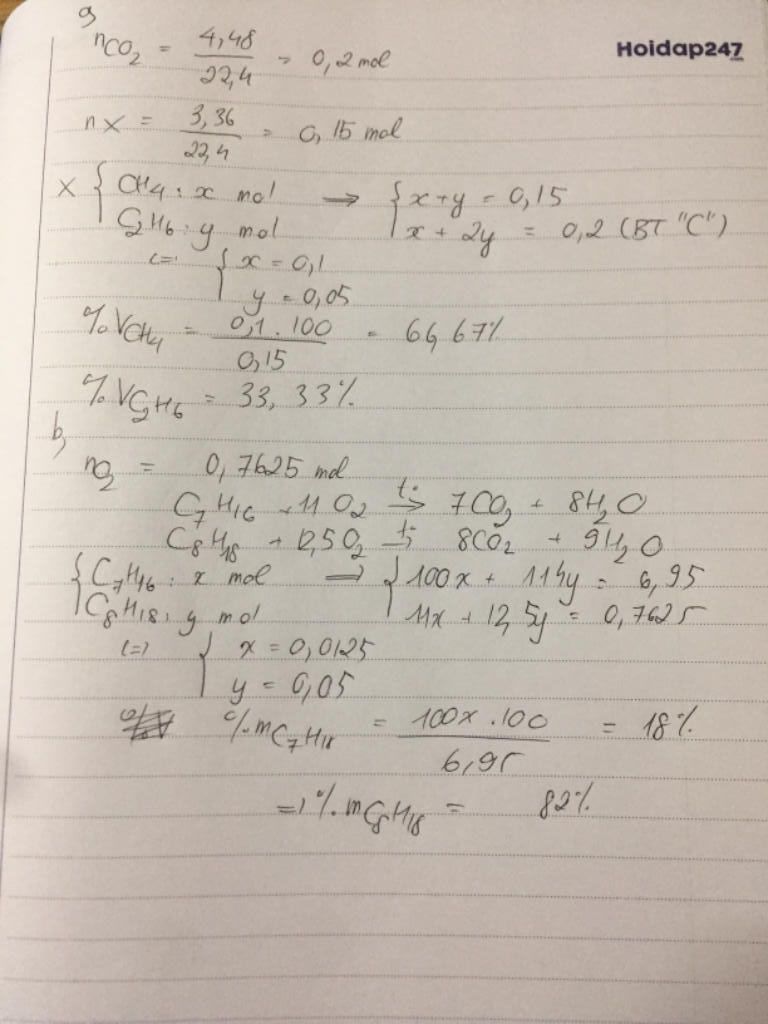 a,
nCO2 = 4,48/22,4 = 0,2 mol
Hoidap247
nX = 3,36/22,4 = 0,15 mol
X { CH4: x mol → { x + y = 0,15
C2H6: y mol x + 2y = 0,2 (BT "C")
(=) { x = 0,1
y = 0,05
%VCH4 = 0,1 . 100/0,15 = 66,67%
%VC2H6 = 33,33%
b,
nO2 = 0,7625 mol
C7H16 + 11O2 t°→ 7CO2 + 8H2O
C8H18 + 12,5O2 t°→ 8CO2 + 9H2O
{ C7H16: x mol => { 100x + 114y = 6,95
C8H18: y mol 11x + 12,5y = 0,7625
(=) { x = 0,0125
y = 0,05
%mC7H18 = 100x . 100/6,95 = 18%
=) %mC8H18 = 82%